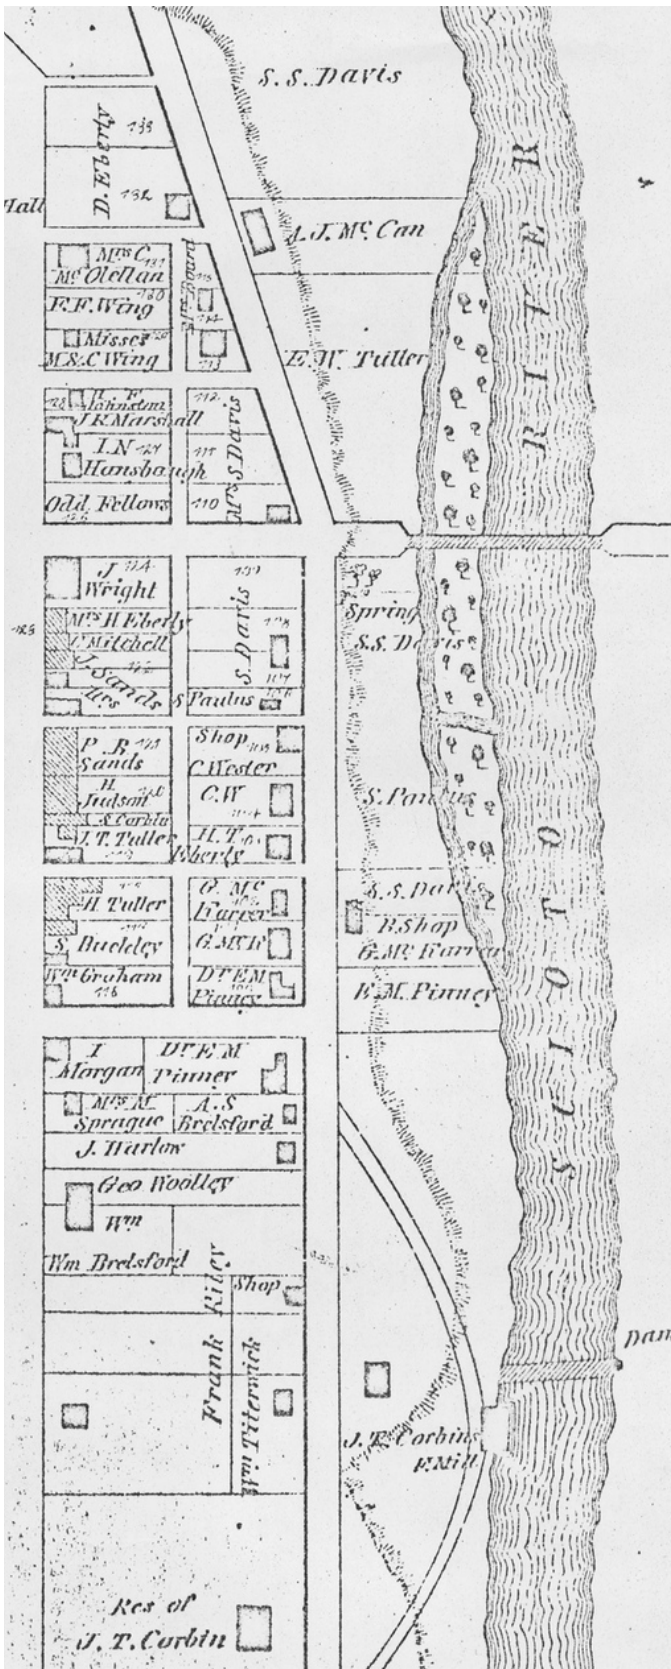 S. S. Davis
D. Eberly
133
132
Hall
A. J. Mc. Can
Mrs C
Mc Olellan
131
F. F. Wing
130
Misses
M & C Wing
Mrs Board
E. W. Tuller
H F
Johnston
J. R. Marshall
I. N
Hansbaugh
Odd Fellows
112
111
110
Mrs S Davis
RIVER
J
Wright
124
Mrs H Eberly
Mitchell
J. Sands
Hrs
109
108
107
106
S. Davis
S Paulus
Spring
S. S. Davis
P. B
Sands
H
Judson
L. S. Corbin
J. T. Tuller
Shop
C. Wester
C. W
H. T
Eberly
S. Paulus
H Tuller
S. Buckley
Wm Graham
116
G. Mc
Karrer
G. Mc K
Dr E M
Pinney
S. S. Davis
B. Shop
G. Mc Karrer
E. M. Pinney
SCIOTO
I
Morgan
Dr E. M
Pinney
Mrs M
Sprague
A. S
Brelsford
J. Harlow
Geo Woolley
Wm
Wm Brelsford
Frank Riley
Shop
Wm Titerwick
Dam
J. T. Corbins
F. Mill
Res of
J. T. Corbin